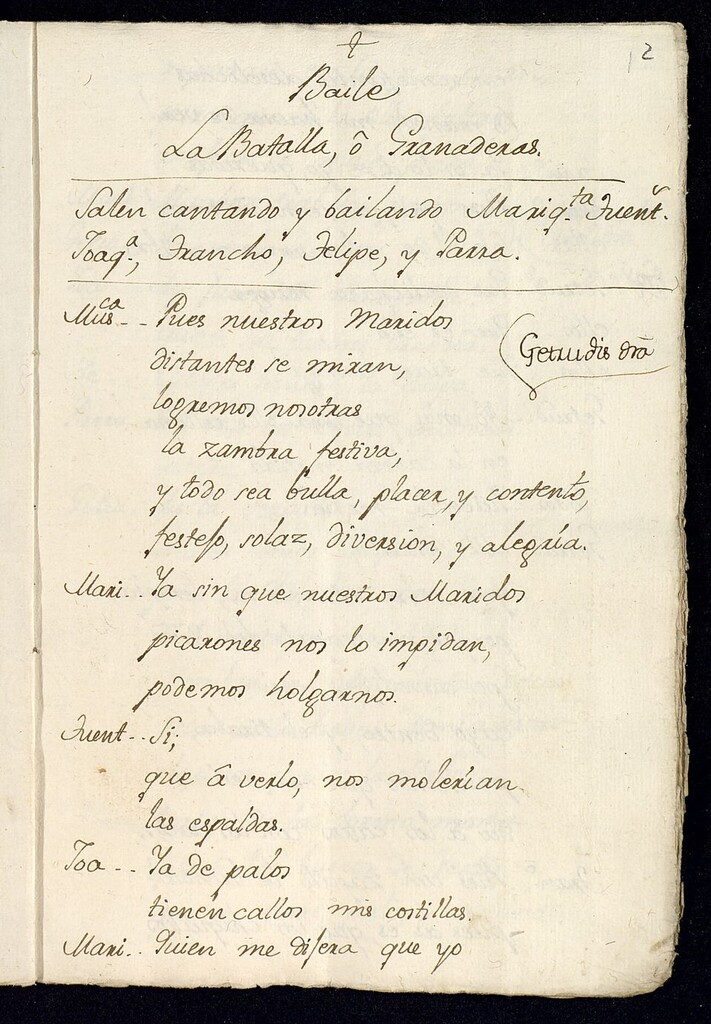 2
Baile
La Batalla, ô Granaderas.
Salen cantando y bailando Mariq.ta Fuent.s
Joaq.a, Francho, Felipe, y Parra.
Mus.ca - - Pues nuestros Maridos
distantes se miran,
Getrudis
logremos nosotras
la zambra festiva,
y todo sea bulla, placer, y contento,
festejo, solaz, diversion, y alegría.
Mari - - Ya sin que nuestros Maridos
picarones nos lo impidan,
podemos holgarnos.
Fuent - - Si;
que â verlo, nos molerían
las espaldas.
Joa - - Ya de palos
tienen callos mis costillas.
Mari - - Quien me dijera que yo